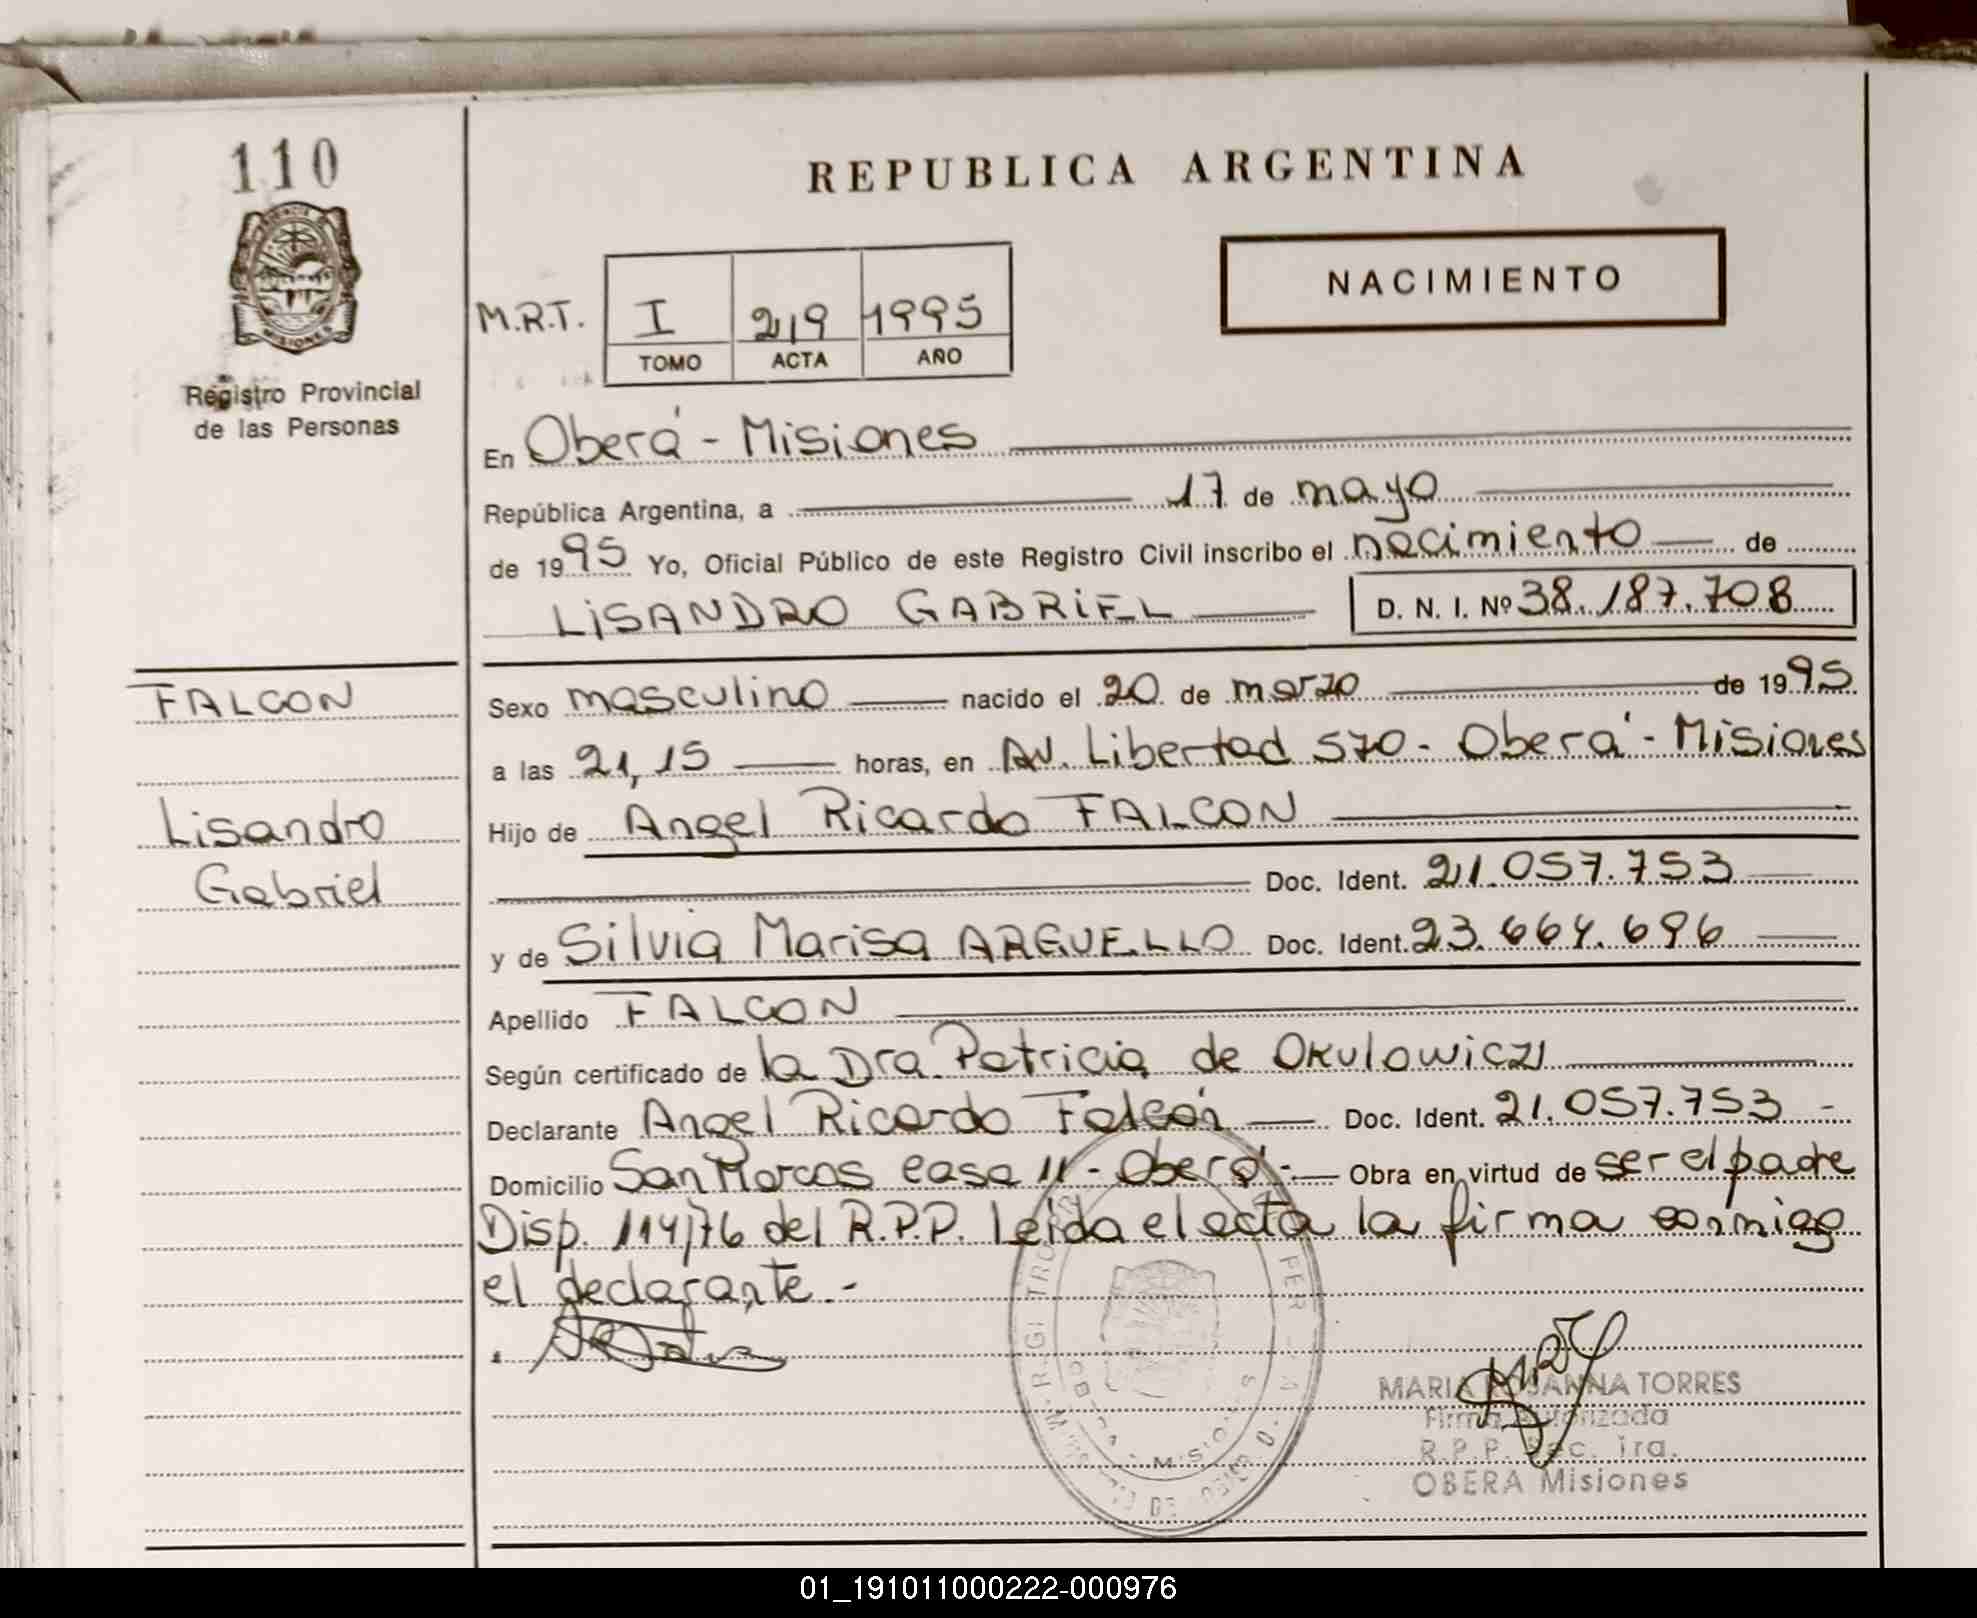 110
REPUBLICA ARGENTINA
NACIMIENTO
M.R.T. I 219 1995
TOMO ACTA AÑO
MISIONES
Registro Provincial
de las Personas
En Oberá - Misiones
República Argentina, a 17 de mayo
de 1995 Yo, Oficial Público de este Registro Civil inscribo el nacimiento de
LISANDRO GABRIEL D. N. I. Nº 38.187.708
FALCON
Lisandro
Gabriel
Sexo masculino nacido el 20 de marzo de 1995
a las 21,15 horas, en Av. Libertad 570 - Oberá - Misiones
Hijo de Angel Ricardo FALCON
Doc. Ident. 21.057.753
y de Silvia Marisa ARGUELLO Doc. Ident. 23.664.696
Apellido FALCON
Según certificado de la Dra. Patricia de Okulowicz
Declarante Angel Ricardo Falcón Doc. Ident. 21.057.753 -
Domicilio San Marcos casa 11 - Oberá - Obra en virtud de ser el padre
Disp. 114/76 del R.P.P. Leída el acta la firma conmigo
el declarante.-
MARIA ROSANNA TORRES
Firma Autorizada
R.P.P. Sec. 1ra.
OBERA Misiones
01_191011000222-000976